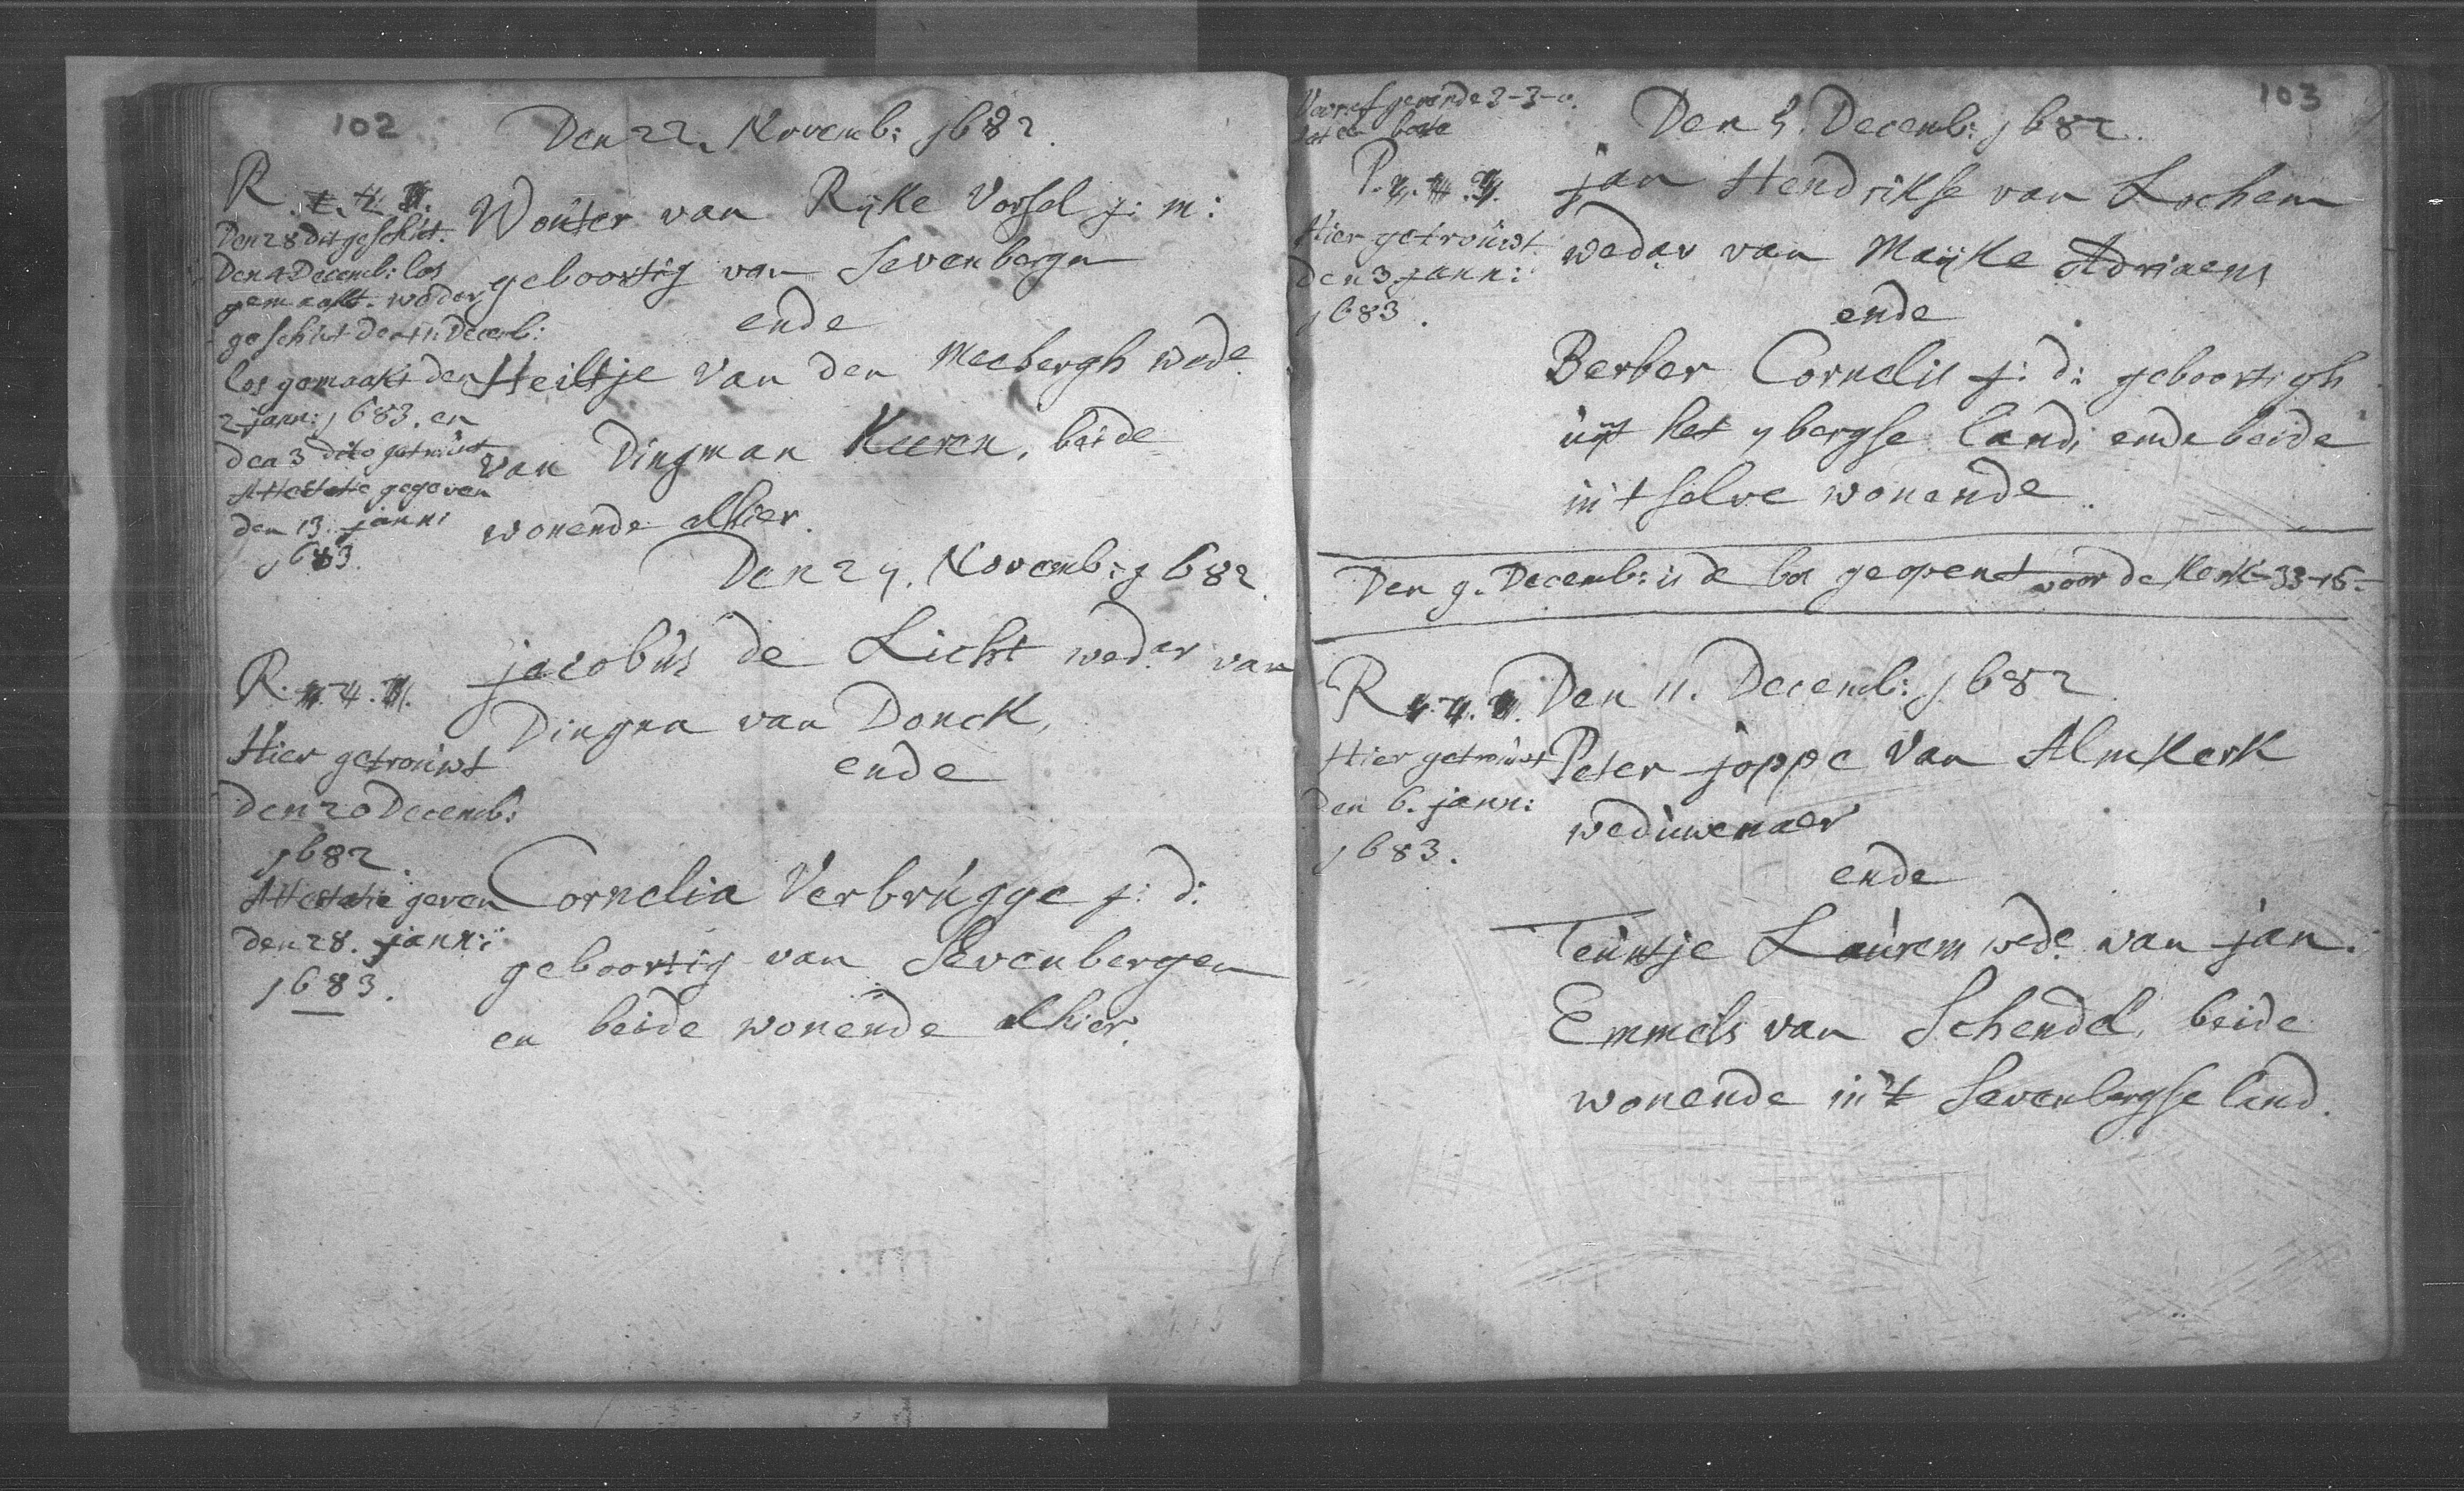 102
Den 22. Novemb: 1682.
R.
Den 28 dit geschut.
Den 4 Decemb: los
gemaakt. weder
geschut den 11 Decemb:
los gemaakt den
2 jann: 1683. en
den 3 dito getrouwt
Attestatie gegeven
den 13. jann:
1683.
Wouter van Rijke Vorsel j: m:
geboortig van Sevenbergen
ende
Heiltje van den Meebergh wede
van Dingman Keeren, beide
wonende alhier.
Den 29. Novemb: 1682.
R.
Hier getrouwt
den 20 Decemb:
1682.
Attestatie geven
den 28. jann:
1683.
jacobus de Licht wedar van
Dingna van Donck,
ende
Cornelia Verbrugge j: d:
geboortig van Sevenbergen
en beide wonende alhier.
103
3-3-0.
Den 5. Decemb: 1682.
P.
Hier getrouwt
den 3 jann:
1683.
jan Hendrikse van Lochem
wedar van Maijke Adriaens
ende
Berber Cornelis j: d: geboortigh
uijt het ybergse land, ende beide
in t selve wonende.
Den 9. Decemb: is de bos geopent voor de Kerk 33-15-
R
Den 11. Decemb: 1682
Hier getrouwt
den 6. jann:
1683.
Peter joppe van Almkerk
weduwenaer
ende
Teuntje Laurens wede van jan
Emmels van Schendel, beide
wonende in 't Sevenbergse land.